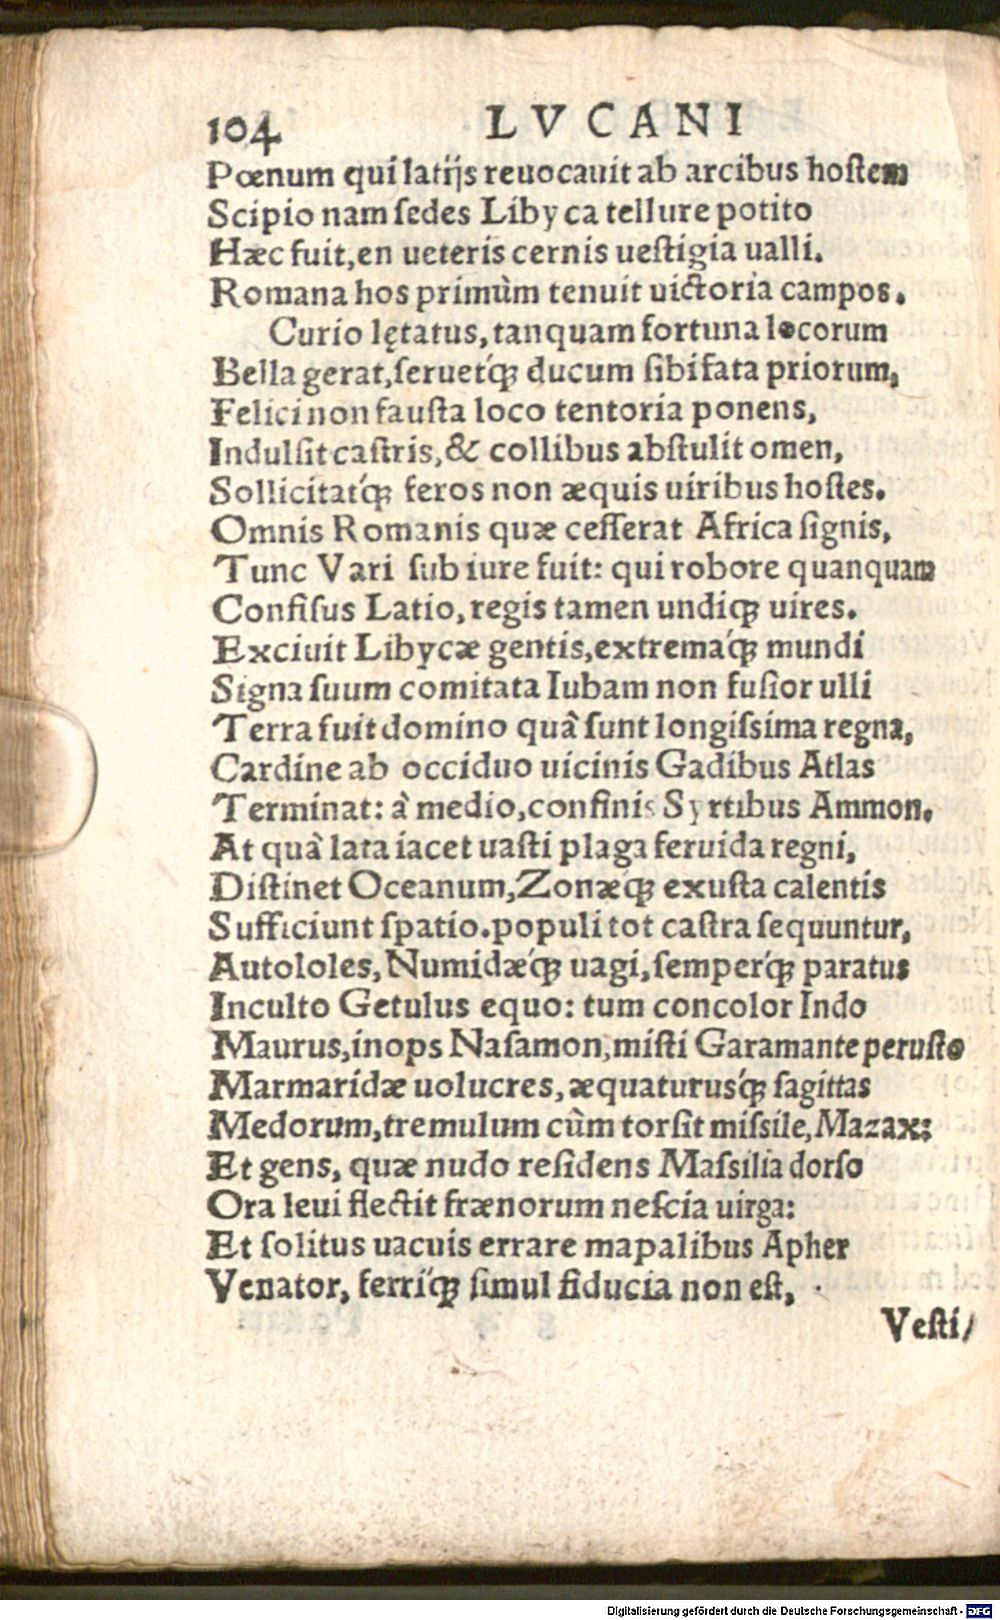 104 LVCANI
Pœnum qui latijs reuocauit ab arcibus hostem
Scipio nam sedes Libyca tellure potito
Hæc fuit, en ueteris cernis uestigia ualli.
Romana hos primùm tenuit uictoria campos.
Curio lętatus, tanquam fortuna locorum
Bella gerat, seruet́q; ducum sibi fata priorum,
Felici non fausta loco tentoria ponens,
Indulsit castris, & collibus abstulit omen,
Sollicitat́q; feros non æquis uiribus hostes.
Omnis Romanis quæ cesserat Africa signis,
Tunc Vari sub iure fuit: qui robore quanquam
Confisus Latio, regis tamen undiq; uires.
Exciuit Libycæ gentis, extremáq; mundi
Signa suum comitata Iubam non fusior ulli
Terra fuit domino quâ sunt longissima regna,
Cardine ab occiduo uicinis Gadibus Atlas
Terminat: à medio, confinis Syrtibus Ammon.
At quà lata iacet uasti plaga feruida regni,
Distinet Oceanum, Zonæq́; exusta calentis
Sufficiunt spatio. populi tot castra sequuntur,
Autololes, Numidæq́; uagi, semperq́; paratus
Inculto Getulus equo: tum concolor Indo
Maurus, inops Nasamon, misti Garamante perusto
Marmaridæ uolucres, æquaturusq́; sagittas
Medorum, tremulum cùm torsit missile, Mazax:
Et gens, quæ nudo residens Massilia dorso
Ora leui flectit frænorum nescia uirga:
Et solitus uacuis errare mapalibus Apher
Venator, ferriq́; simul fiducia non est,
Vesti/
Digitalisierung gefördert durch die Deutsche Forschungsgemeinschaft - DFG